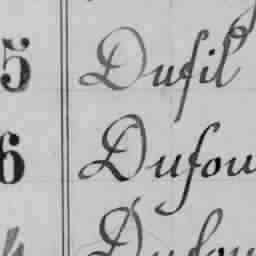 5 Dufil
6 Dufou
Dufou